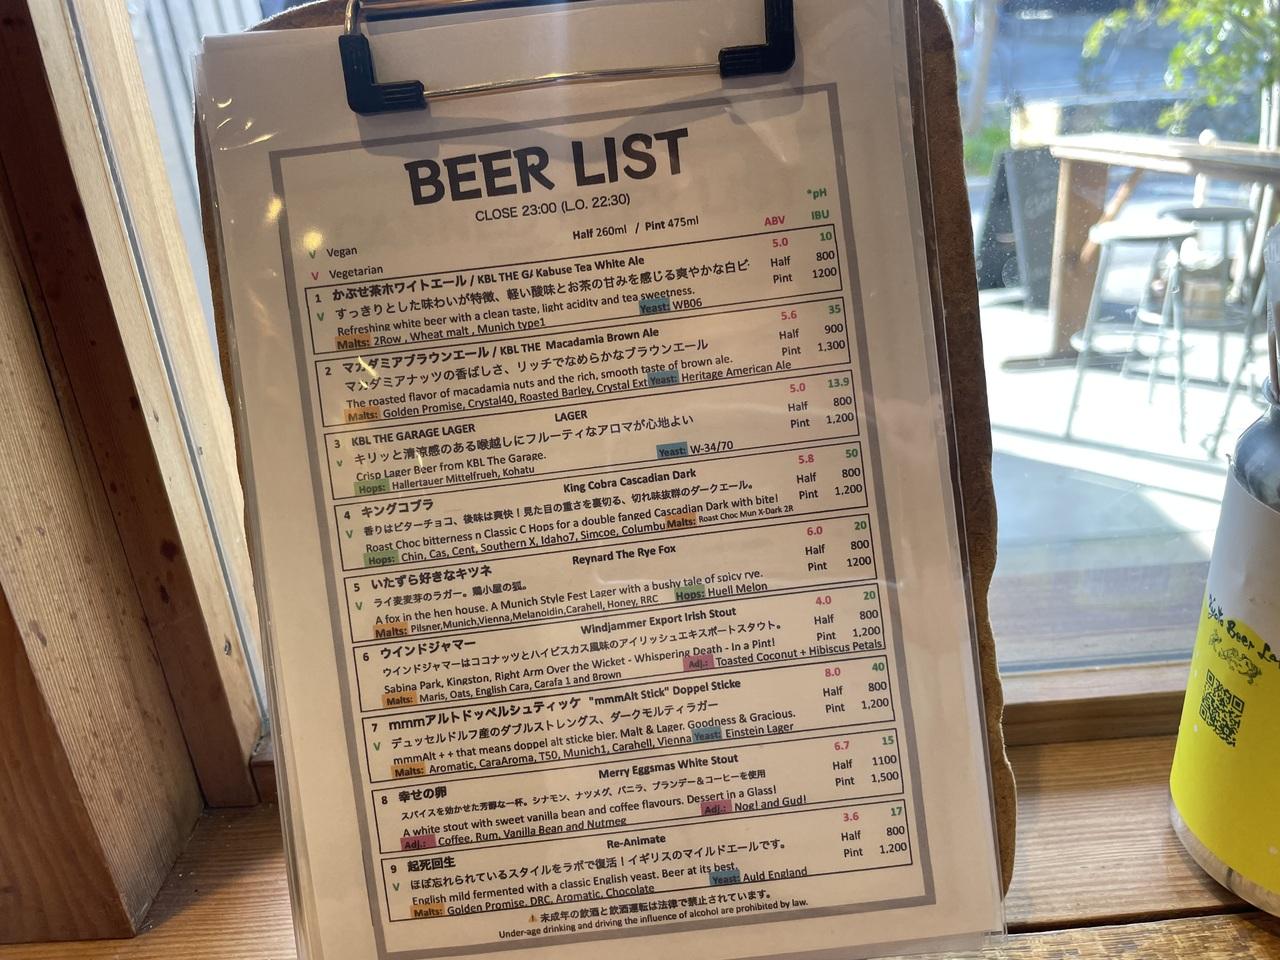 BEER LIST
CLOSE 23:00 (L.O. 22:30)
*pH
V Vegan
Half 260ml / Pint 475ml
ABV IBU
V Vegetarian
1 かぶせ茶ホワイトエール / KBL THE G/ Kabuse Tea White Ale 5.0 10
V すっきりとした味わいが特徴、軽い酸味とお茶の甘みを感じる爽やかな白ビ Half 800
Refreshing white beer with a clean taste, light acidity and tea sweetness. Pint 1200
Malts: 2Row , Wheat malt , Munich type1 Yeast: WB06
2 マカダミアブラウンエール / KBL THE Macadamia Brown Ale 5.6 35
マカダミアナッツの香ばしさ、リッチでなめらかなブラウンエール Half 900
The roasted flavor of macadamia nuts and the rich, smooth taste of brown ale. Pint 1,300
Malts: Golden Promise, Crystal40, Roasted Barley, Crystal Ext Yeast: Heritage American Ale
3 KBL THE GARAGE LAGER LAGER 5.0 13.9
V キリッと清涼感のある喉越しにフルーティなアロマが心地よい Half 800
Crisp Lager Beer from KBL The Garage. Pint 1,200
Hops: Hallertauer Mittelfrueh, Kohatu Yeast: W-34/70
4 キングコブラ King Cobra Cascadian Dark 5.8 50
V 香りはビターチョコ、後味は爽快！見た目の重さを裏切る、切れ味抜群のダークエール。 Half 800
Roast Choc bitterness n Classic C Hops for a double fanged Cascadian Dark with bite! Pint 1,200
Hops: Chin, Cas, Cent, Southern X, Idaho7, Simcoe, Columbu Malts: Roast Choc Mun X-Dark 2R
5 いたずら好きなキツネ Reynard The Rye Fox 6.0 20
V ライ麦麦芽のラガー。鶏小屋の狐。 Half 800
A fox in the hen house. A Munich Style Fest Lager with a bushy tale of spicy rye. Pint 1200
Malts: Pilsner,Munich,Vienna,Melanoidin,Carahell, Honey, RRC Hops: Huell Melon
6 ウインドジャマー Windjammer Export Irish Stout 4.0 20
ウインドジャマーはココナッツとハイビスカス風味のアイリッシュエキスポートスタウト。 Half 800
Sabina Park, Kingston, Right Arm Over the Wicket - Whispering Death - In a Pint! Pint 1,200
Malts: Maris, Oats, English Cara, Carafa 1 and Brown Adj.: Toasted Coconut + Hibiscus Petals
7 mmmアルトドッペルシュティッケ "mmmAlt Stick" Doppel Sticke 8.0 40
V デュッセルドルフ産のダブルストレングス、ダークモルティラガー Half 800
mmmAlt + + that means doppel alt sticke bier. Malt & Lager. Goodness & Gracious. Pint 1,200
Malts: Aromatic, CaraAroma, T50, Munich1, Carahell, Vienna Yeast: Einstein Lager
8 幸せの卵 Merry Eggsmas White Stout 6.7 15
スパイスを効かせた芳醇な一杯。シナモン、ナツメグ、バニラ、ブランデー＆コーヒーを使用 Half 1100
A white stout with sweet vanilla bean and coffee flavours. Dessert in a Glass! Pint 1,500
Adj.: Coffee, Rum, Vanilla Bean and Nutmeg Adj.: Nog! and Gud!
9 起死回生 Re-Animate 3.6 17
V ほぼ忘れられているスタイルをラボで復活！イギリスのマイルドエールです。 Half 800
English mild fermented with a classic English yeast. Beer at its best. Pint 1,200
Malts: Golden Promise, DRC, Aromatic, Chocolate Yeast: Auld England
⚠ 未成年の飲酒と飲酒運転は法律で禁止されています。
Under-age drinking and driving the influence of alcohol are prohibited by law.
Beer